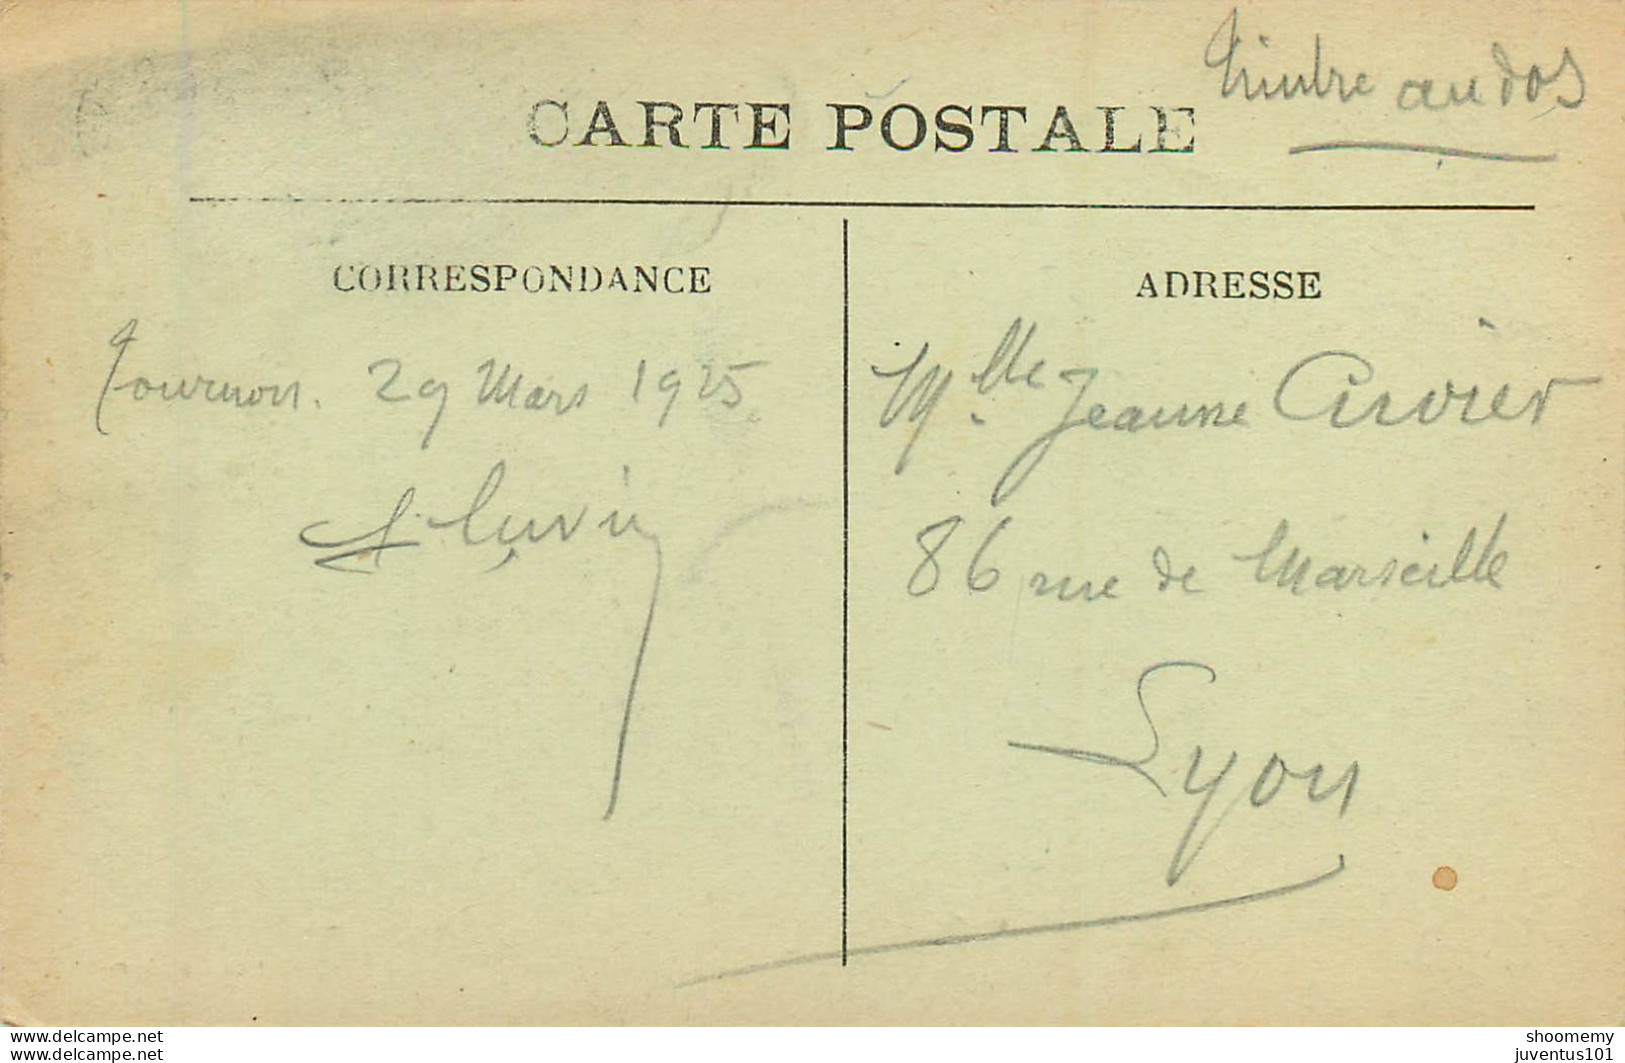 Timbre au dos
CARTE POSTALE
CORRESPONDANCE
Tournon. 29 Mars 1925
ADRESSE
Mlle Jeanne
86 rue de Marseille
Lyon
www.delcampe.net
www.delcampe.net
shoomemy
juventus101